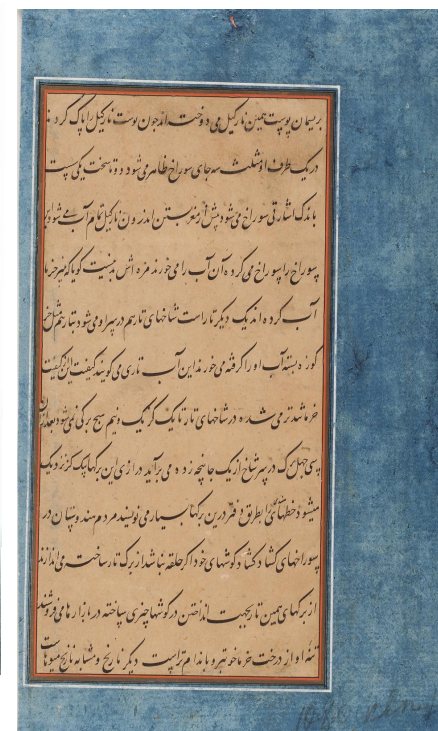 بریسمان پوست همین نارکیل می دوخته اند چون پوست نارکیل را پاک کردند
در یک طرف او مثلث سه جای سوراخ ظاهر می شود دو تا سخت یکی سست
باندک اشارتی سوراخ می شود پیش از مغز بستن اندرون نارکیل تمام آب می شود این
سوراخ را سوراخ می کرده آن آب را می خورند مزه اش بد نیست گویا که پنیر خرما
آب کرده اند یک دیگر تار است شاخهای تار هم در سر او می شود بتار هم مثل خر
کوزه بسته آب او را گرفته می خورند این آب تاری می گویند کیفت این از کیفیت
خرما تندتر می شده در شاخهای تار تا یک گز یک و نیم هیچ برکی نمی شود بعد از آن
سی چهل برگ در سر شاخ از یک جا پنجه زده می برآید درازی این برکها یک گز نزدیک
میشود خطهای را بطریق دفتر درین برکها بسیار می نویسند مردم هندوستان در
سوراخهای کشاد کشاد کوشهای خود اکر حلقه نباشد از برک تار ساخته می اندازند
از برکهای همین تار بجهت انداختن در کوشها چیزی ساخته در بازارها می فروشند
تنه او از درخت خرما خوبتر و باندام تر است دیگر نارنج و مشابه نارنج میوهاست